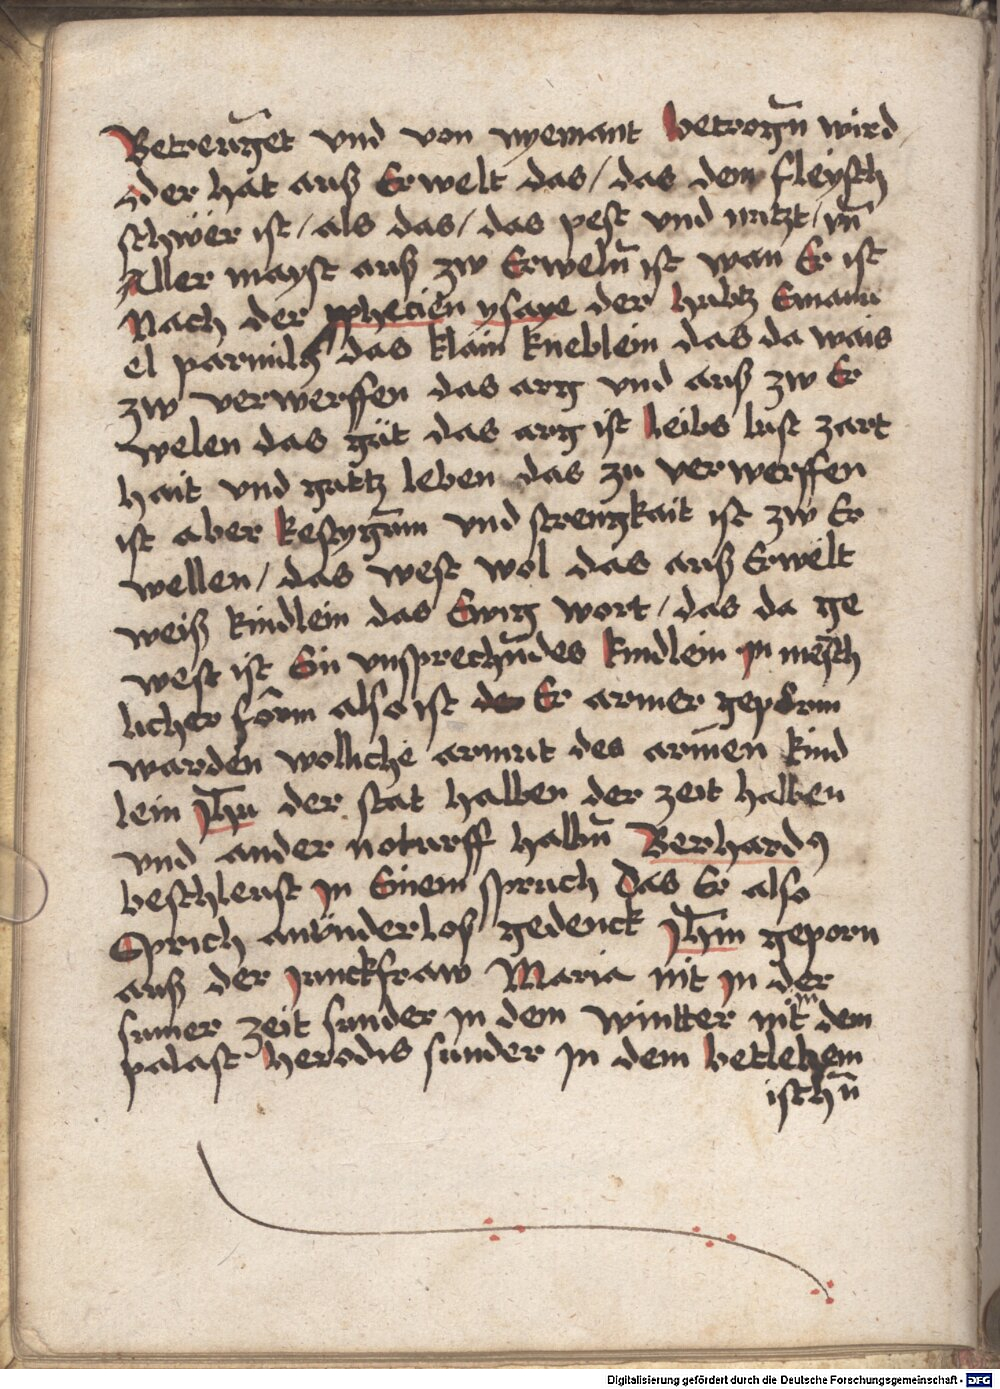 Betreuget vnd von nyemant betrogn̄ wird /
der hat auß Erwelt das / das dem fleysch
schwër ist / als das / das pest vnd nutzt / vn̄
Aller mayst auß zw Erweln̄ ist wan Er ist
Nach der pphecien ysaye der hubtz Emanu
el parmilch das klain kneblein das da wais
zw verwerffen das arg vnd auß zw Er
welen das güt das arg ist leibs lust zart
hait vnd gattz leben das zu verwerffen
ist aber kestygūm vnd strengkait ist zw Er
wellen / das west wol das auß Erwelt
weiß kindlein das Ewig wort / das da ge
west ist Ein vnsprechn̄des kindlein jn mēsch
licher form also ist der Er armer geporn
warden wolliche armut des armen kind
lein Jhu der stat halben der zeit halben
vnd ander noturff halbn̄ Berhard9
beschleust jn Einem spruch Das Er also
Sprich anwünderlos gedenck Jhm geporn
auß der junckfraw Maria nit jn der
sumer zeit sunder jn dem wintter nit jn dem
palast herodis sunder jn dem betlehem
ischn̄
Digitalisierung gefördert durch die Deutsche Forschungsgemeinschaft - DFG